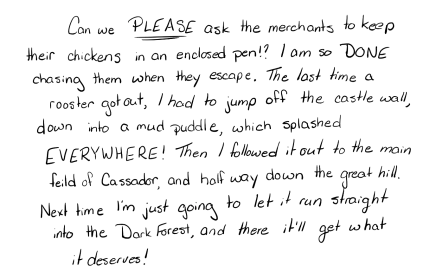 Can we PLEASE ask the merchants to keep
their chickens in an enclosed pen!? I am so DONE
chasing them when they escape. The last time a
rooster got out, I had to jump off the castle wall,
down into a mud puddle, which splashed
EVERYWHERE! Then I followed it out to the main
feild of Cassador, and half way down the great hill.
Next time I'm just going to let it run straight
into the Dark Forest, and there it'll get what
it deserves!